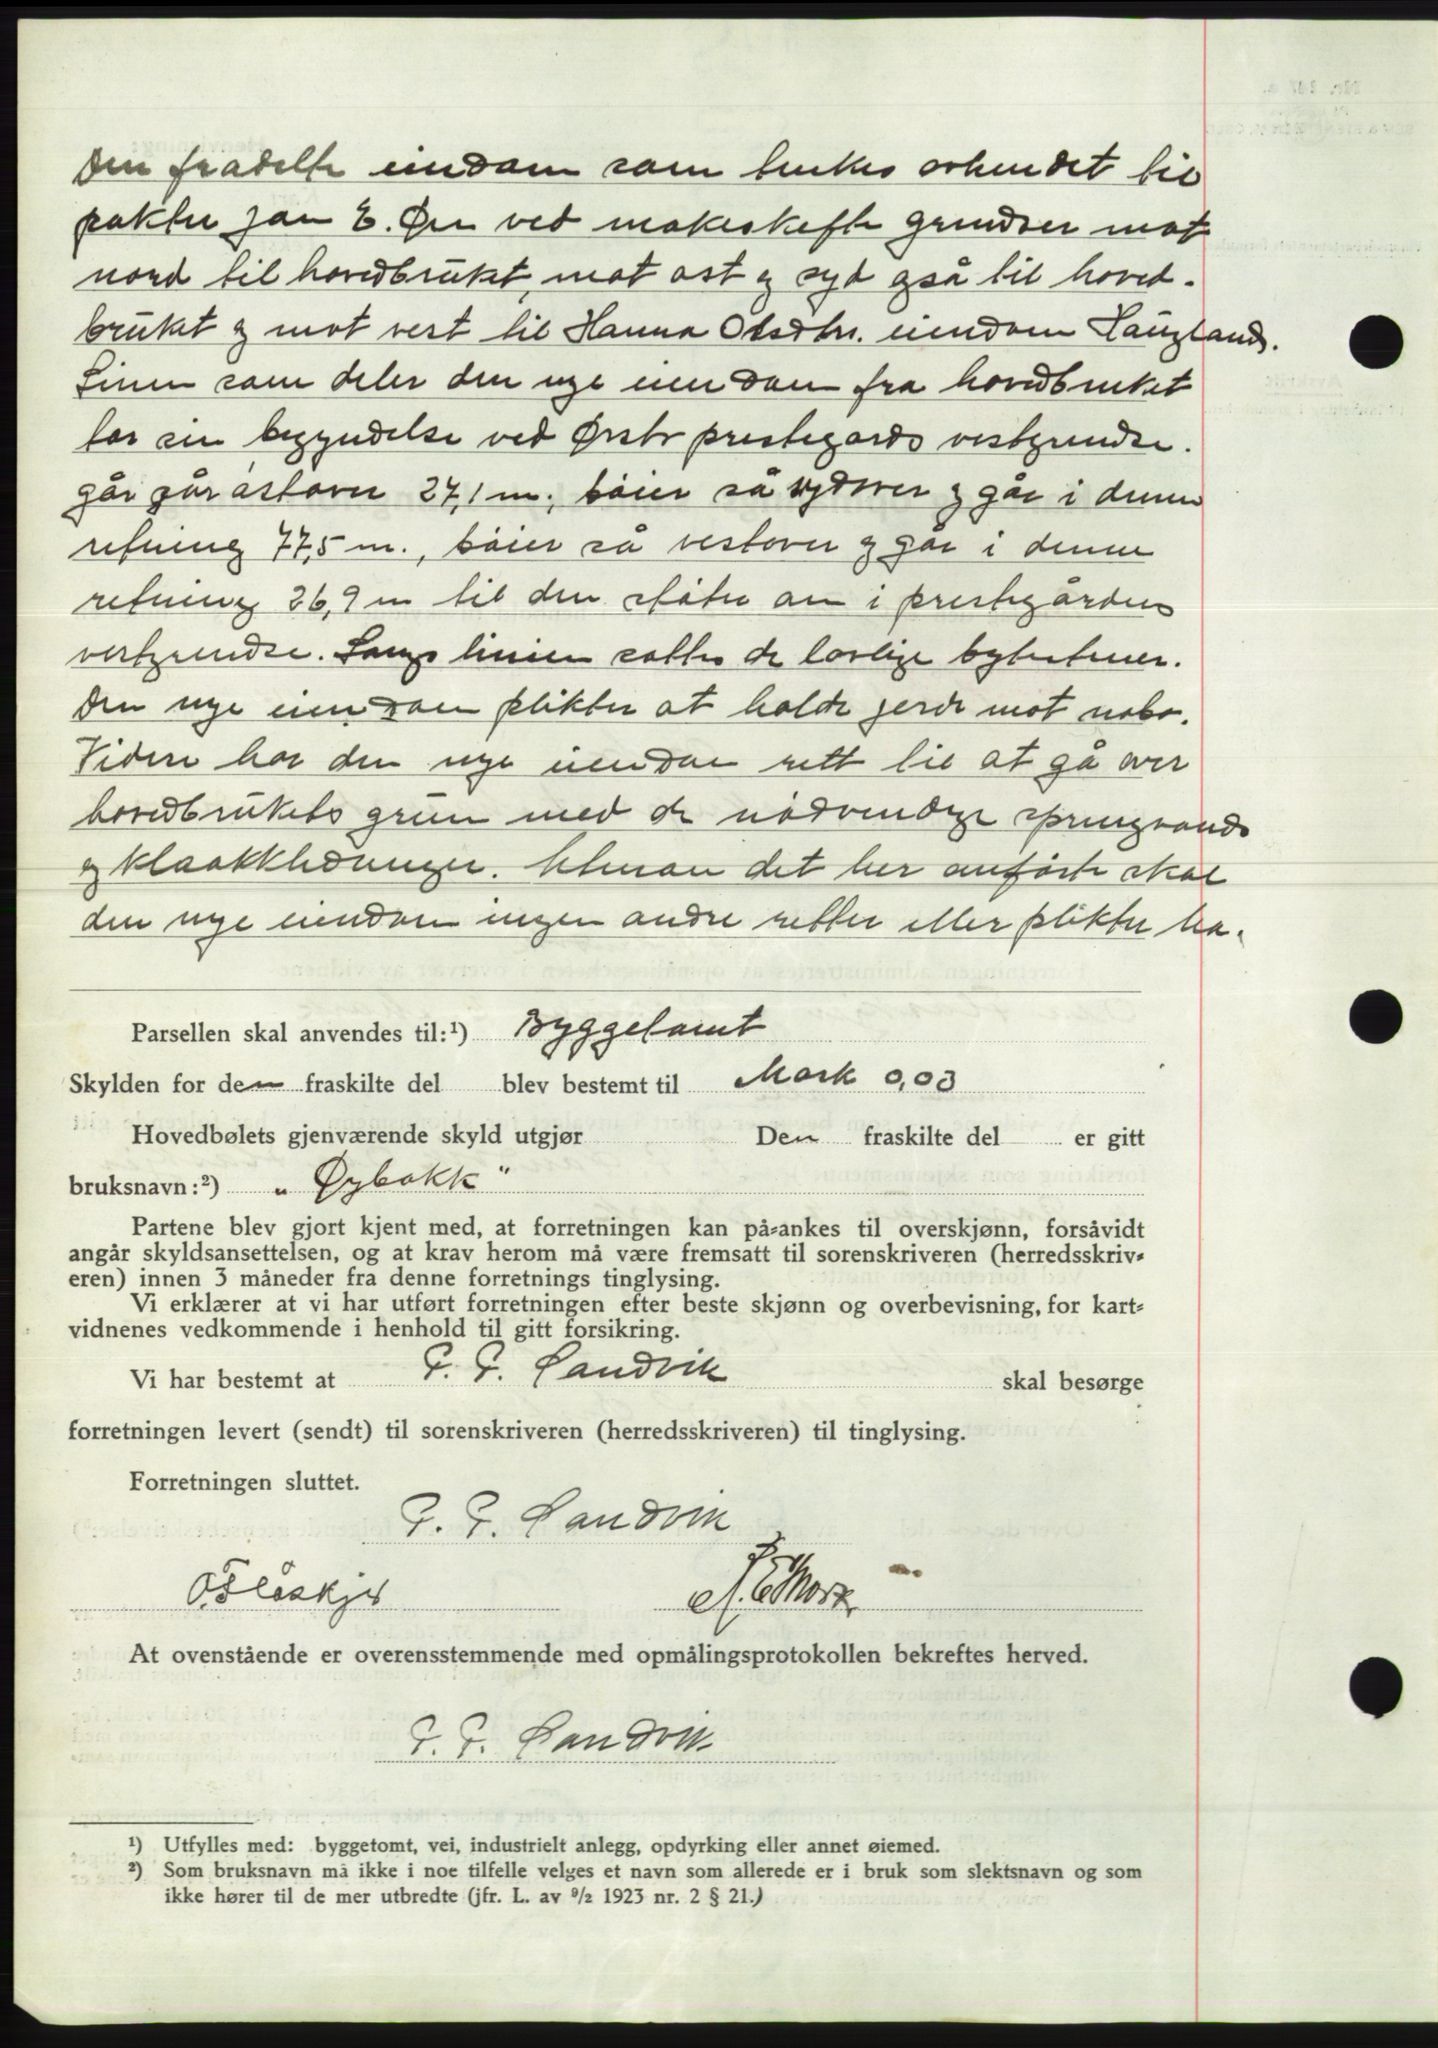 Den fradelte eiendom som tenkes avhendet til
pakter Jon E. Øen ved makeskifte grendser mot
nord til hovedbruket, mot ost og syd også til hoved-
bruket og mot vest til Hanna Olsdtr. eiendom Haugland.
Linen som deler den nye eiendom fra hovedbruket
tar sin begyndelse ved Ørsta prestegards vestgrendse.
går på ostover 27,1 m., bøier så sydover og går i denne
retning 77,5 m., bøier så vestover og går i denne
retning 26,9 m til den støter an i prestegårdens
vestgrendse. Langs linien sattes de lovlige bytestener.
Den nye eiendom plikter at holde jerde mot nabo.
Videre har den nye eiendom rett til at gå over
hovedbrukets grun med de nødvendige springvands
og kloakkledninger. Utenom det her anførte skal
den nye eiendom ingen andre retter eller plikter ha.
Parsellen skal anvendes til:¹) Byggetomt
Skylden for den fraskilte del blev bestemt til Mark 0,03
Hovedbølets gjenværende skyld utgjør Den fraskilte del er gitt
bruksnavn:²) „Øybakk“
Partene blev gjort kjent med, at forretningen kan på-ankes til overskjønn, forsåvidt
angår skyldsansettelsen, og at krav herom må være fremsatt til sorenskriveren (herredsskriv-
eren) innen 3 måneder fra denne forretnings tinglysing.
Vi erklærer at vi har utført forretningen efter beste skjønn og overbevisning, for kart-
vidnenes vedkommende i henhold til gitt forsikring.
Vi har bestemt at P. P. Sandvik skal besørge
forretningen levert (sendt) til sorenskriveren (herredsskriveren) til tinglysing.
Forretningen sluttet.
P. P. Sandvik
O. Flåskjer
At ovenstående er overensstemmende med opmålingsprotokollen bekreftes herved.
P. P. Sandvik
¹) Utfylles med: byggetomt, vei, industrielt anlegg, opdyrking eller annet øiemed.
²) Som bruksnavn må ikke i noe tilfelle velges et navn som allerede er i bruk som slektsnavn og som
ikke hører til de mer utbredte (jfr. L. av 9/2 1923 nr. 2 § 21.)